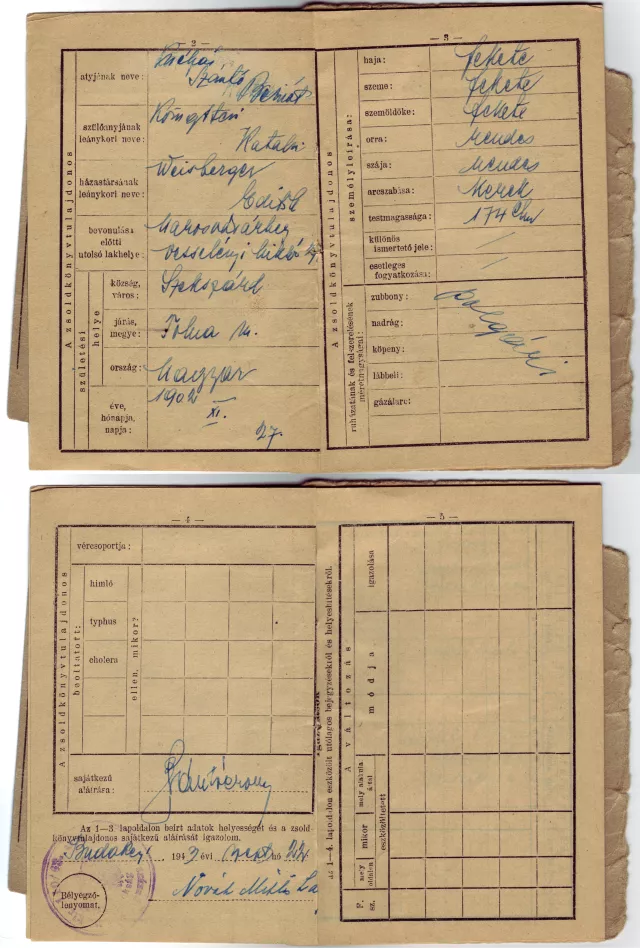 — 2 —
A zsoldkönyvtulajdonos
atyjának neve:
Szántó
szülőanyjának
leánykori neve:
Katalin
házastársának
leánykori neve:
Weisberger
Edith
bevonulása
előtti
utolsó lakhelye:
Marosvásárhely
születési
helye
község,
város:
Szekszárd
járás,
megye:
Tolna m.
ország:
Magyar
éve,
hónapja,
napja:
1902
XI.
27.
— 3 —
A zsoldkönyvtulajdonos
személyleírása:
haja:
fekete
szeme:
fekete
szemöldöke:
fekete
orra:
rendes
szája:
rendes
arcszabása:
kerek
testmagassága:
174 cm
különös
ismertető jele:
/
esetleges
fogyatkozása:
/
ruházatának és felszerelésének
méretnagyságai:
zubbony:
nadrág:
köpeny:
lábbeli:
gázálarc:
polgári
— 4 —
A zsoldkönyvtulajdonos
vércsoportja:
beoltatott:
himlő
typhus
cholera
ellen, mikor?
sajátkezű
aláírása:
Az 1—3. lapoldalon beírt adatok helyességét és a zsold-
könyvtulajdonos sajátkezű aláírását igazolom.
194 évi hó
Bélyegző-
lenyomat.
Novák
— 5 —
az 1—4. lapoldalon eszközölt utólagos bejegyzésekről és helyesbítésekről.
A változás
igazolása
módja
mely alakulat
által
mikor
mely
oldalon
eszközöltetett
F.
sz.